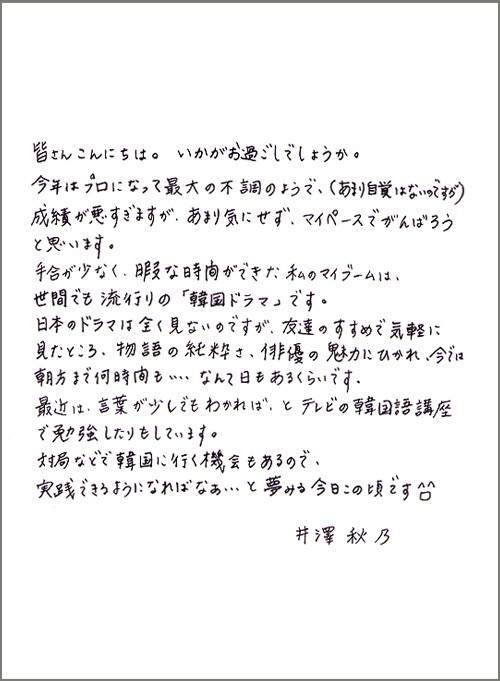 皆さんこんにちは。 いかがお過ごしでしょうか。
今年はプロになって最大の不調のようで、(あまり自覚はないのですが)
成績が悪すぎますが、あまり気にせず、マイペースでがんばろう
と思います。
手合が少なく、暇な時間ができた私のマイブームは、
世間でも流行りの「韓国ドラマ」です。
日本のドラマは全く見ないのですが、友達のすすめで気軽に
見たところ、物語の純粋さ、俳優の魅力にひかれ、今では
朝方まで何時間も…なんて日もあるくらいです。
最近は、言葉が少しでもわかれば、とテレビの韓国語講座
で勉強したりもしています。
対局などで韓国に行く機会もあるので、
実践できるようになればなぁ…と夢みる今日この頃です^口^
井澤 秋乃